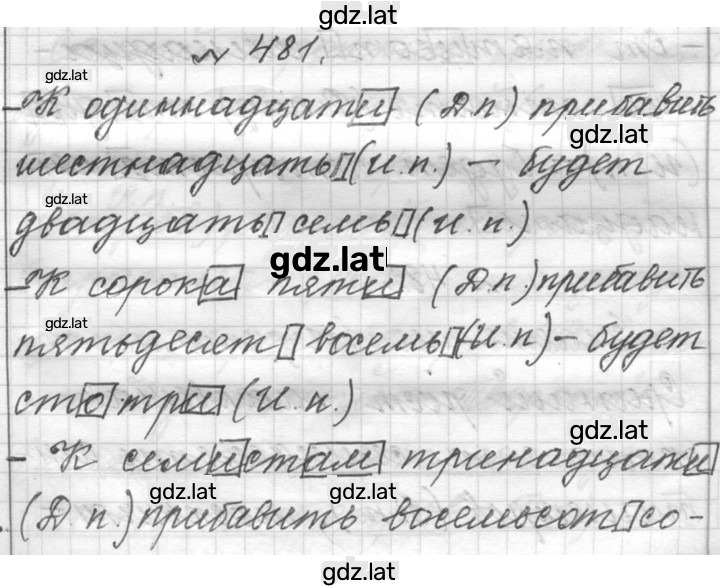 gdz.lat
№ 481.
gdz.lat
– К одиннадцати (Д.п) прибавить
gdz.lat
шестнадцать (И.п.) – будет
gdz.lat
двадцать семь (И.п.)
gdz.lat
– К сорока пяти (Д.п.) прибавить
gdz.lat
пятьдесят восемь (И.п) – будет
сто три (И.п.)
gdz.lat
– К семистам тринадцати
gdz.lat gdz.lat
(Д.п.) прибавить восемьсот со-
gdz.lat